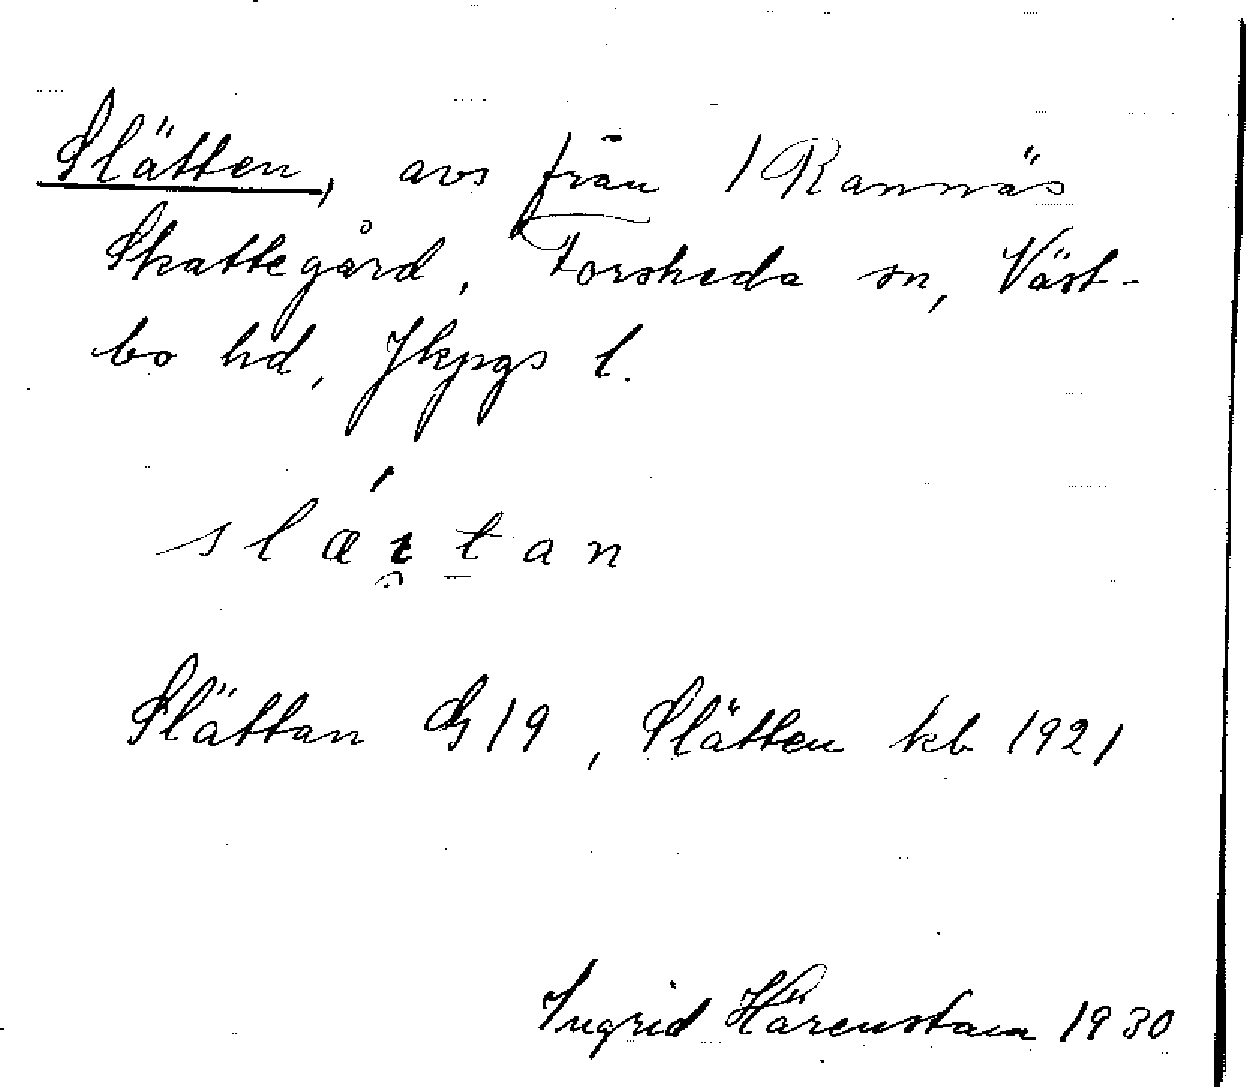 Slätten, avs från 1 Rannäs
Skattegård, Forsheda sn, Väst-
bo hd, Jkpgs l.
slǽı̯tan
Slättan G 19, Slätten kb 1921
Ingrid Härenstam 1930